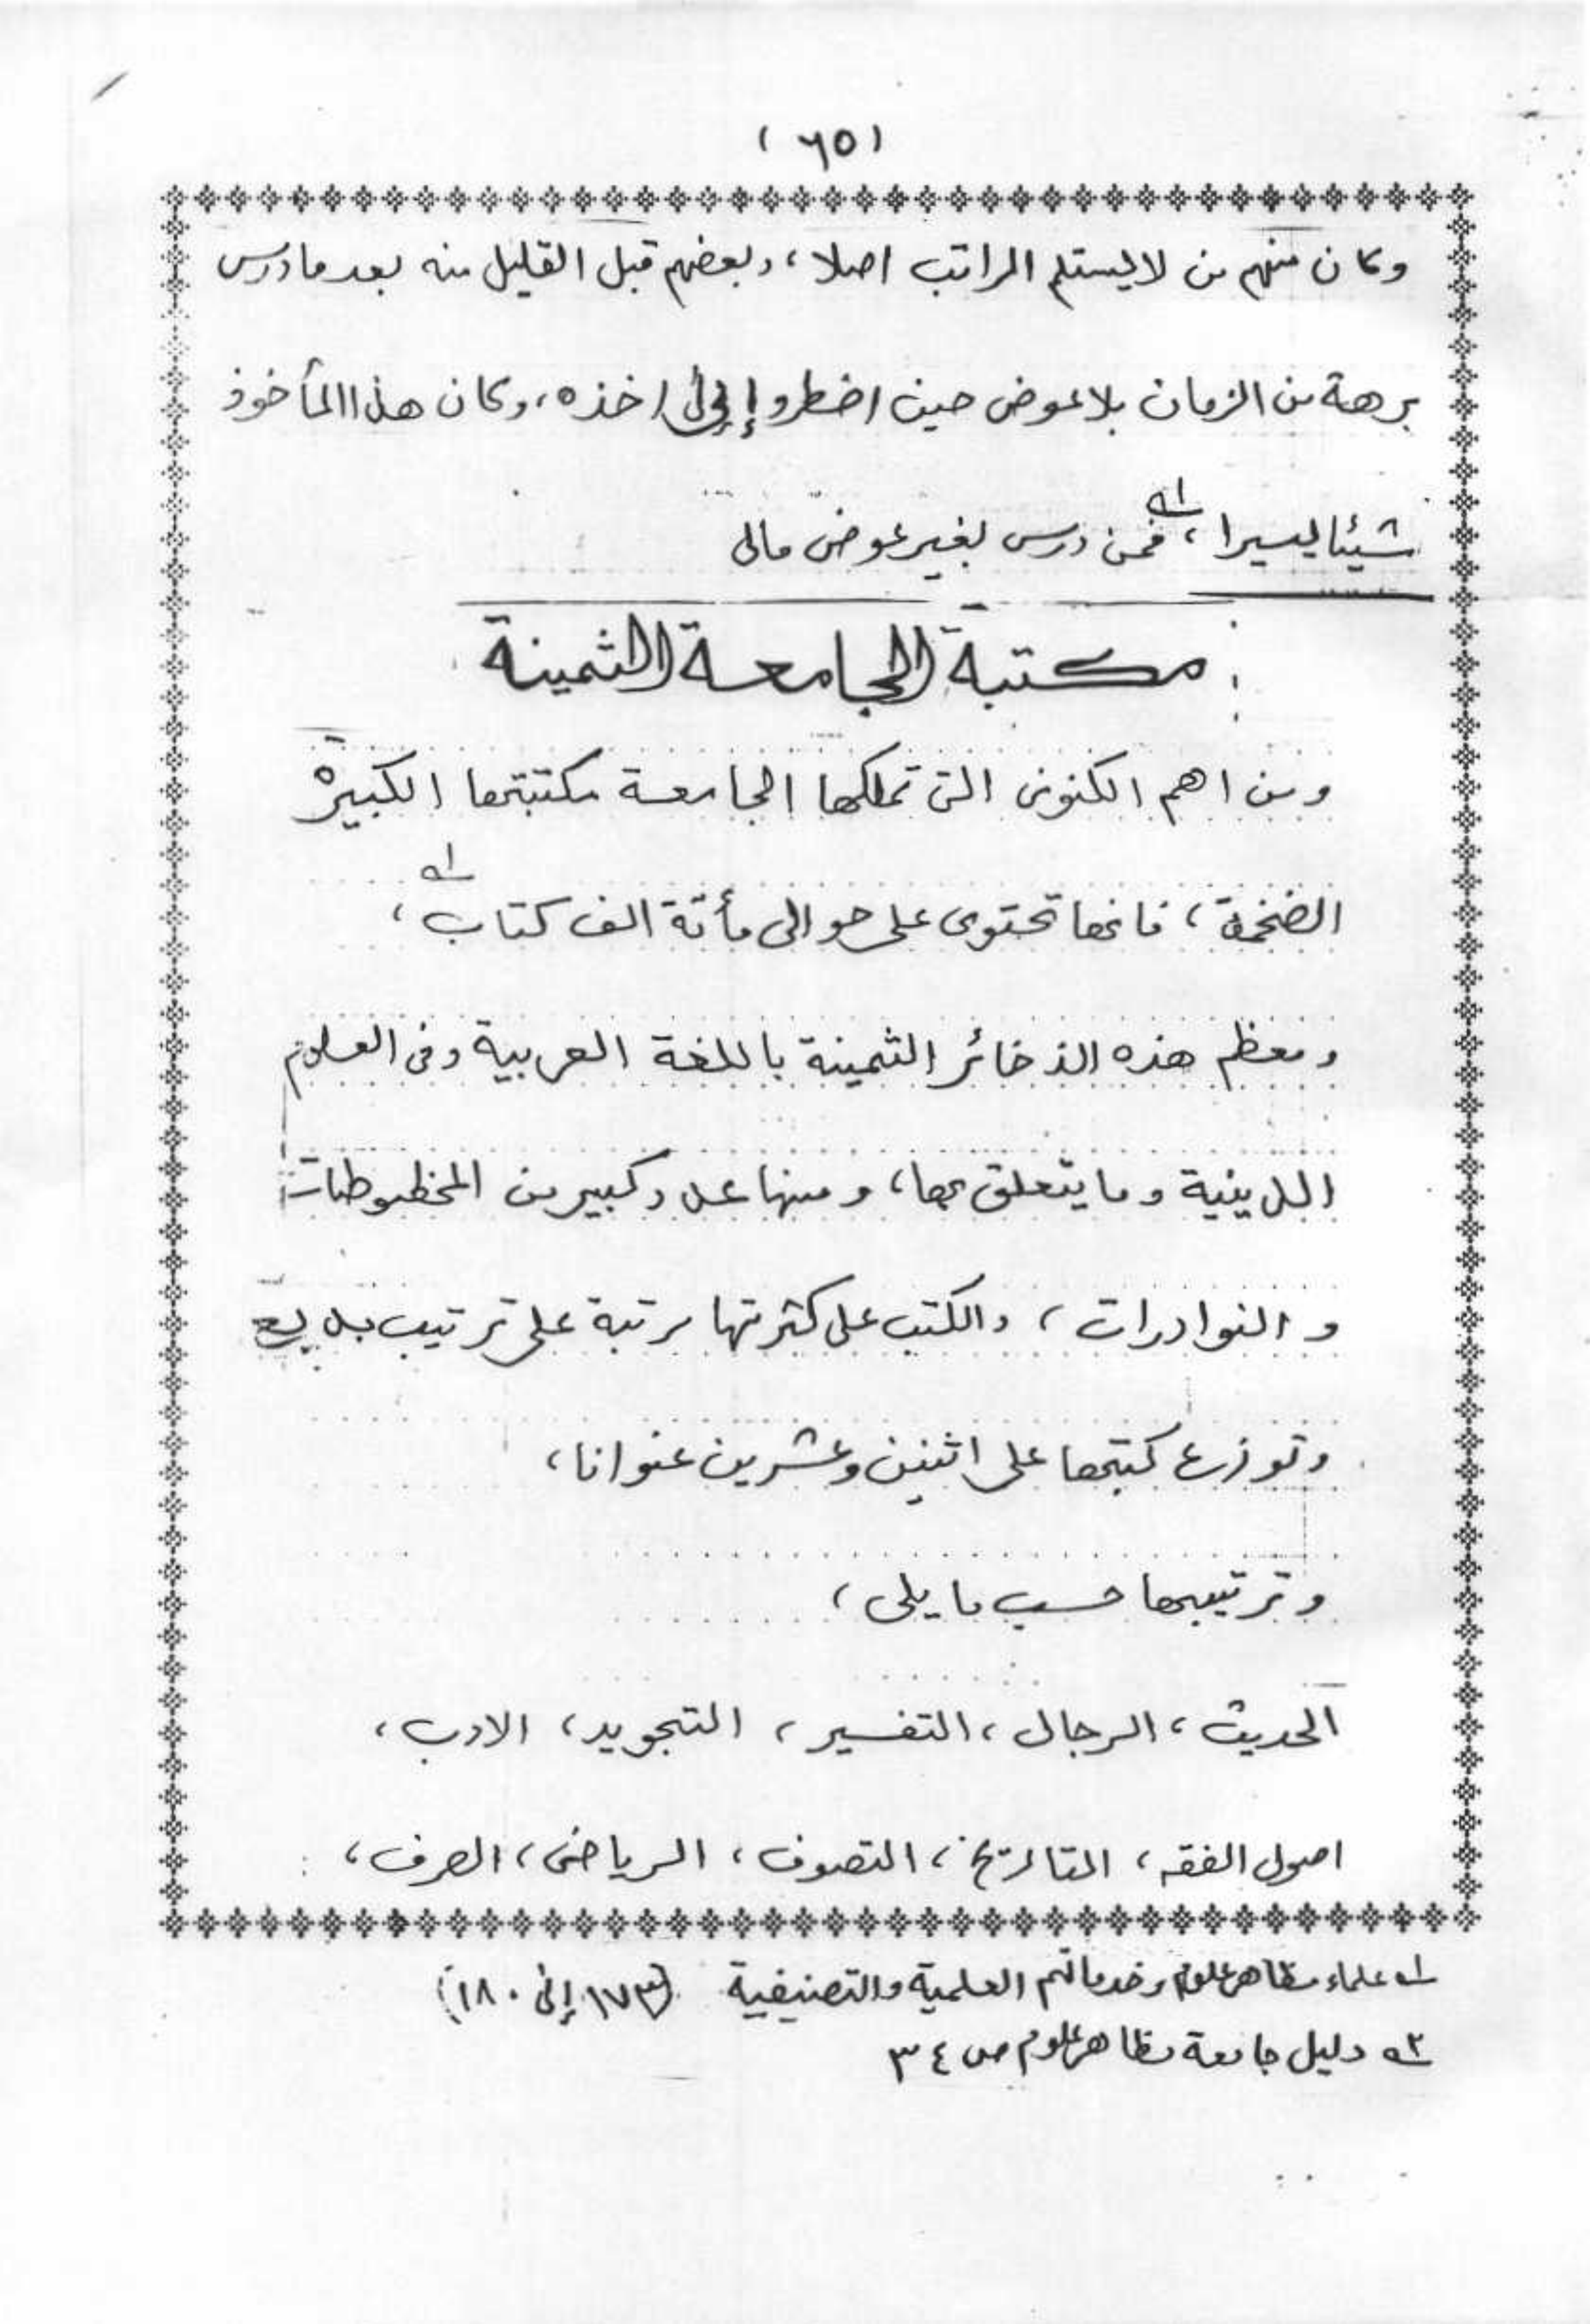 (٦٥)
وكان منهم من لا يستلم الراتب اصلا، وبعضهم قبل القليل منه بعد ما درس
برهة من الزمان بلا عوض حين اضطروا إلى اخذه، وكان هذا المأخوذ
شيئا يسيرا، ١ـه فممن درس بغير عوض مالى
مكتبة الجامعة الثمينة
ومن اهم الكنوز التى تملكها الجامعة مكتبتها الكبيرة
الضخمة، فانها تحتوى على حوالى مأتة الف كتاب ١ـه،
ومعظم هذه الذخائر الثمينة باللغة العربية وفى العلوم
الدينية وما يتعلق بها، ومنها عدد كبير من المخطوطات
و النوادرات، والكتب على كثرتها مرتبة على ترتيب بديع
وتوزع كتبها على اثنين وعشرين عنوانا،
وترتيبها حسب ما يلى،
الحديث، الرجال، التفسير، التجويد، الادب،
اصول الفقه، التاريخ، التصوف، الرياضى، الصرف،
١ـه علماء مظاهر علوم وخدماتهم العلمية والتصنيفية (١٧٣ إلى ١٨٠)
٢ـه دليل جامعة مظاهر علوم ص ٣٤